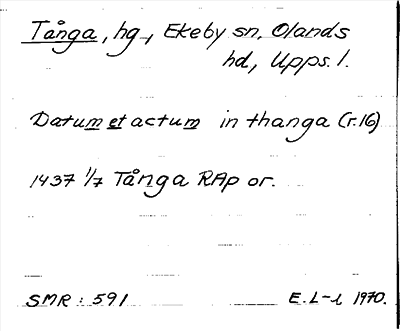 Tånga, hg., Ekeby sn, Olands
hd, Upps. l.
Datum et actum in thanga (r.16)
1437 1/7 Tånga RAp or.
SMR : 591 E. L-l 1970.